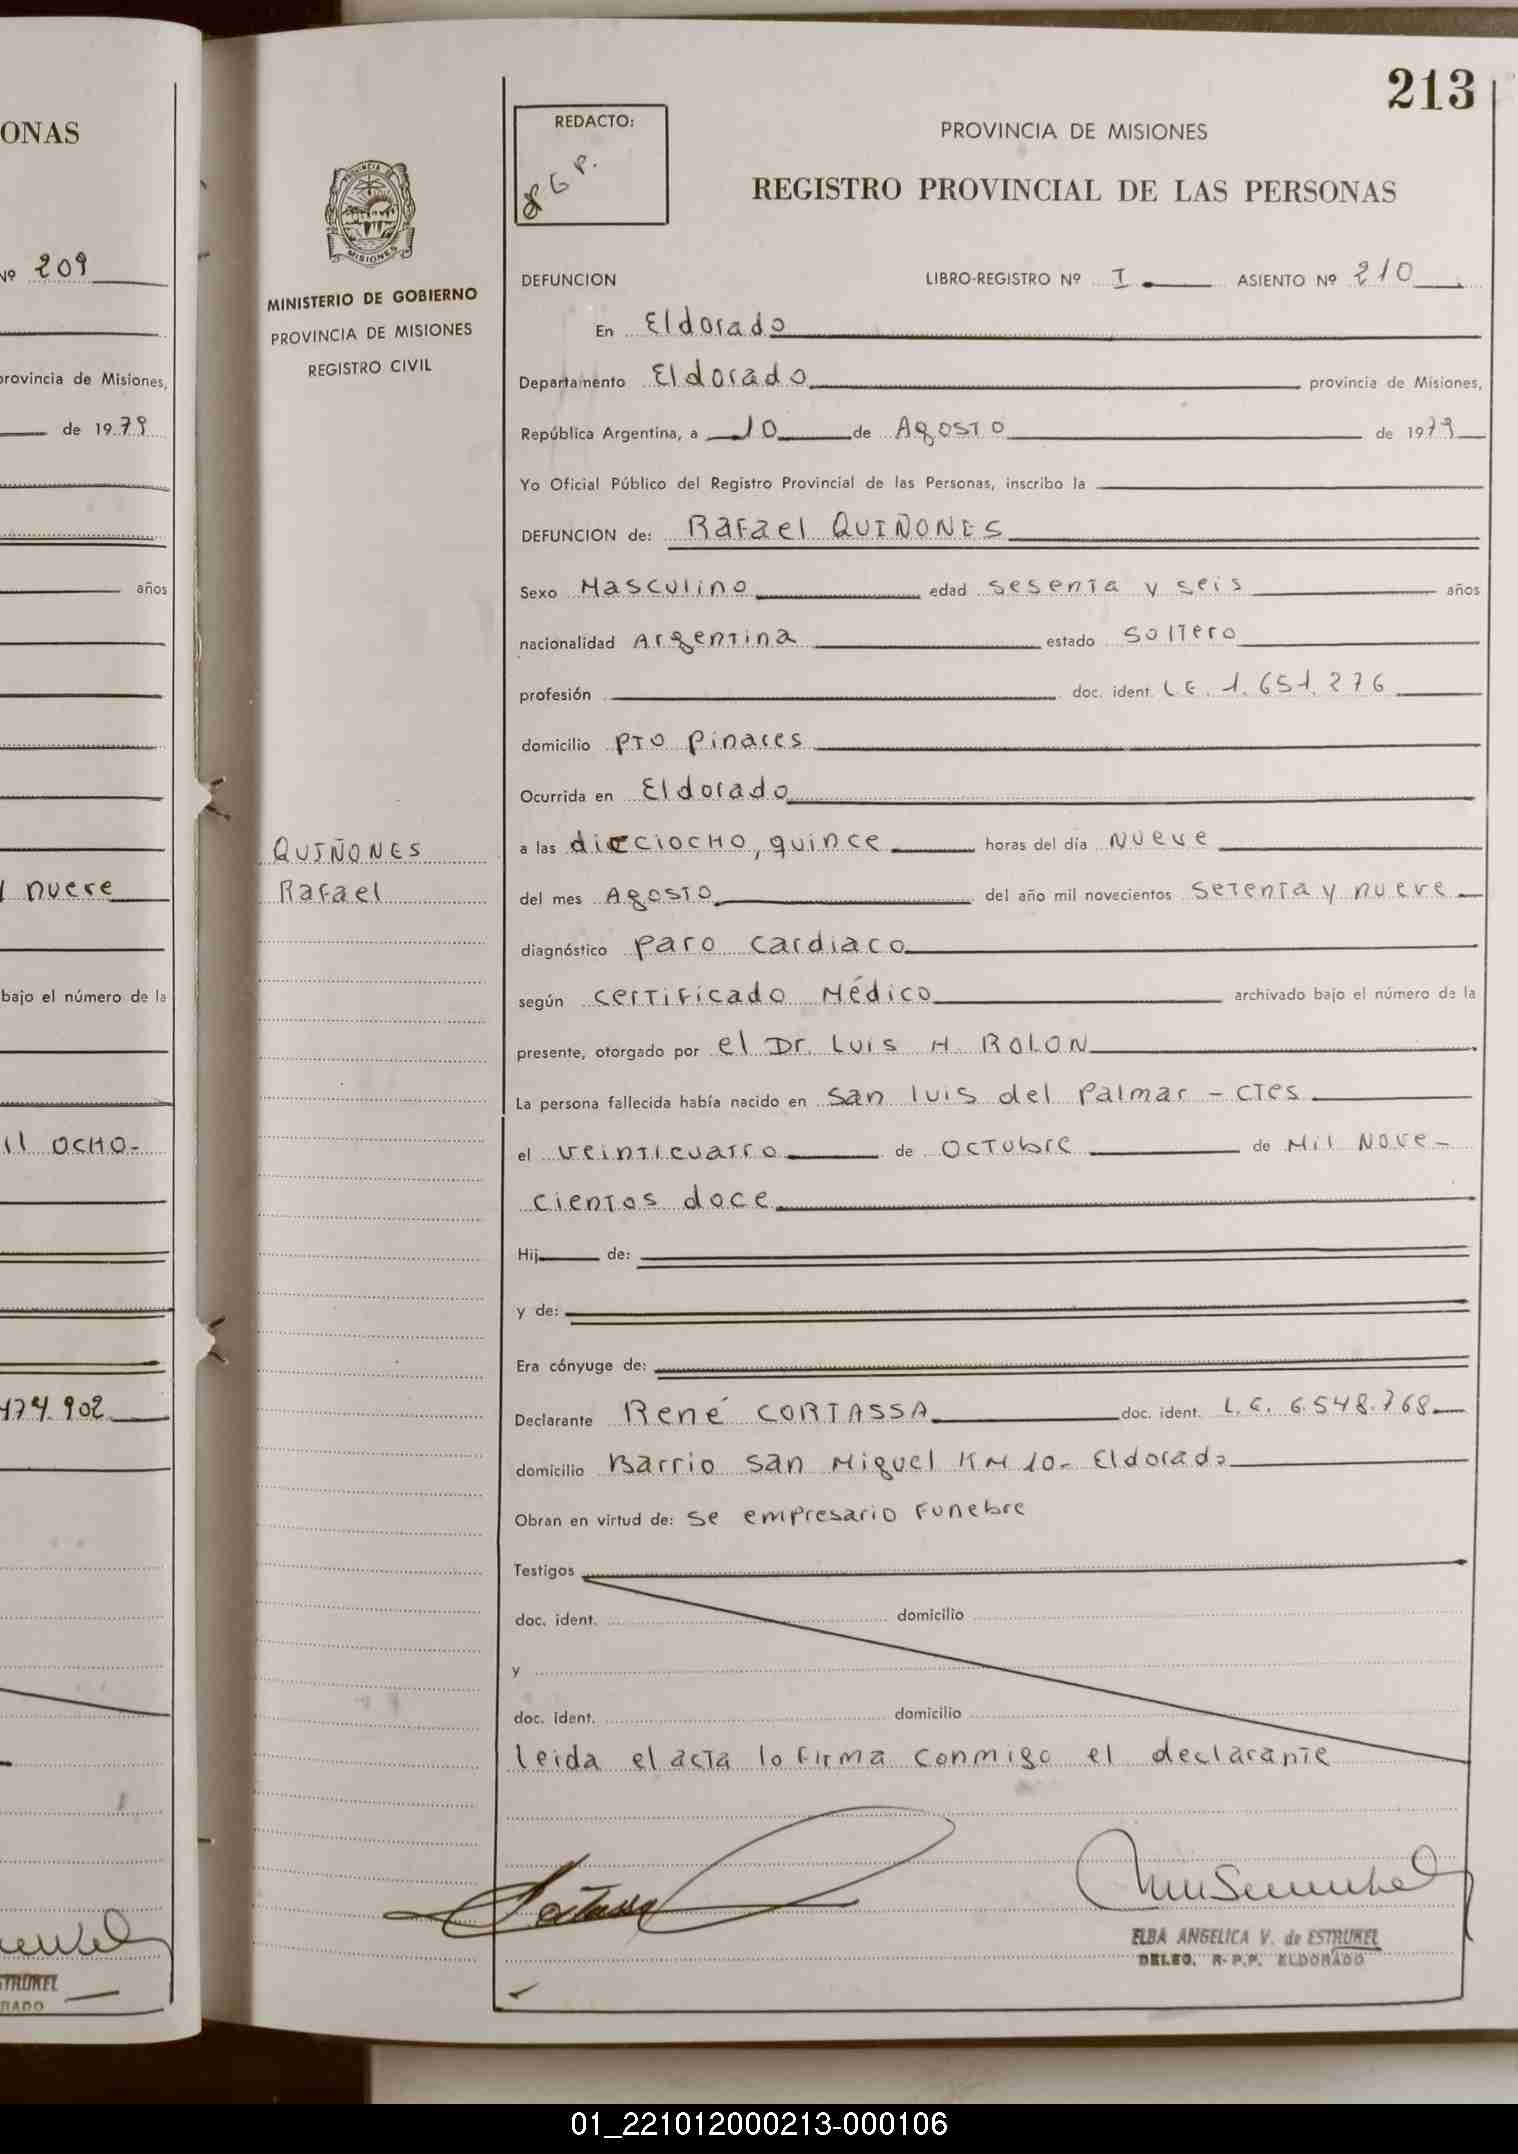 ONAS
Nº 209
provincia de Misiones,
de 1979
años
y nueve
bajo el número de la
il OCHO-
474.902
213
REDACTO:
G P.
PROVINCIA DE MISIONES
REGISTRO PROVINCIAL DE LAS PERSONAS
PROVINCIA DE
MISIONES
MINISTERIO DE GOBIERNO
PROVINCIA DE MISIONES
REGISTRO CIVIL
DEFUNCION LIBRO-REGISTRO Nº I ASIENTO Nº 210
En Eldorado
Departamento Eldorado provincia de Misiones,
República Argentina, a 10 de Agosto de 1979
Yo Oficial Público del Registro Provincial de las Personas, inscribo la
DEFUNCION de: Rafael QUIÑONES
Sexo Masculino edad sesenta y seis años
nacionalidad Argentina estado soltero
profesión doc. ident. L.E. 1.651.276
domicilio Pto Pinares
Ocurrida en Eldorado
QUIÑONES
Rafael
a las dieciocho, quince horas del día nueve
del mes Agosto del año mil novecientos setenta y nueve
diagnóstico paro cardiaco
según certificado Médico archivado bajo el número de la
presente, otorgado por el Dr. Luis H. ROLON
La persona fallecida había nacido en San Luis del Palmar - Ctes
el veinticuatro de Octubre de Mil Nove-
cientos doce
Hij de:
y de:
Era cónyuge de:
Declarante René CORTASSA doc. ident. L.E. 6.548.768
domicilio Barrio San Miguel KM 10- Eldorado
Obran en virtud de: se empresario Funebre
Testigos
doc. ident. domicilio
y
doc. ident. domicilio
leida el acta lo firma conmigo el declarante
ELBA ANGELICA V. de ESTRUKEL
DELEG. R-P.P. ELDORADO
STRUKEL
RADO
01_221012000213-000106